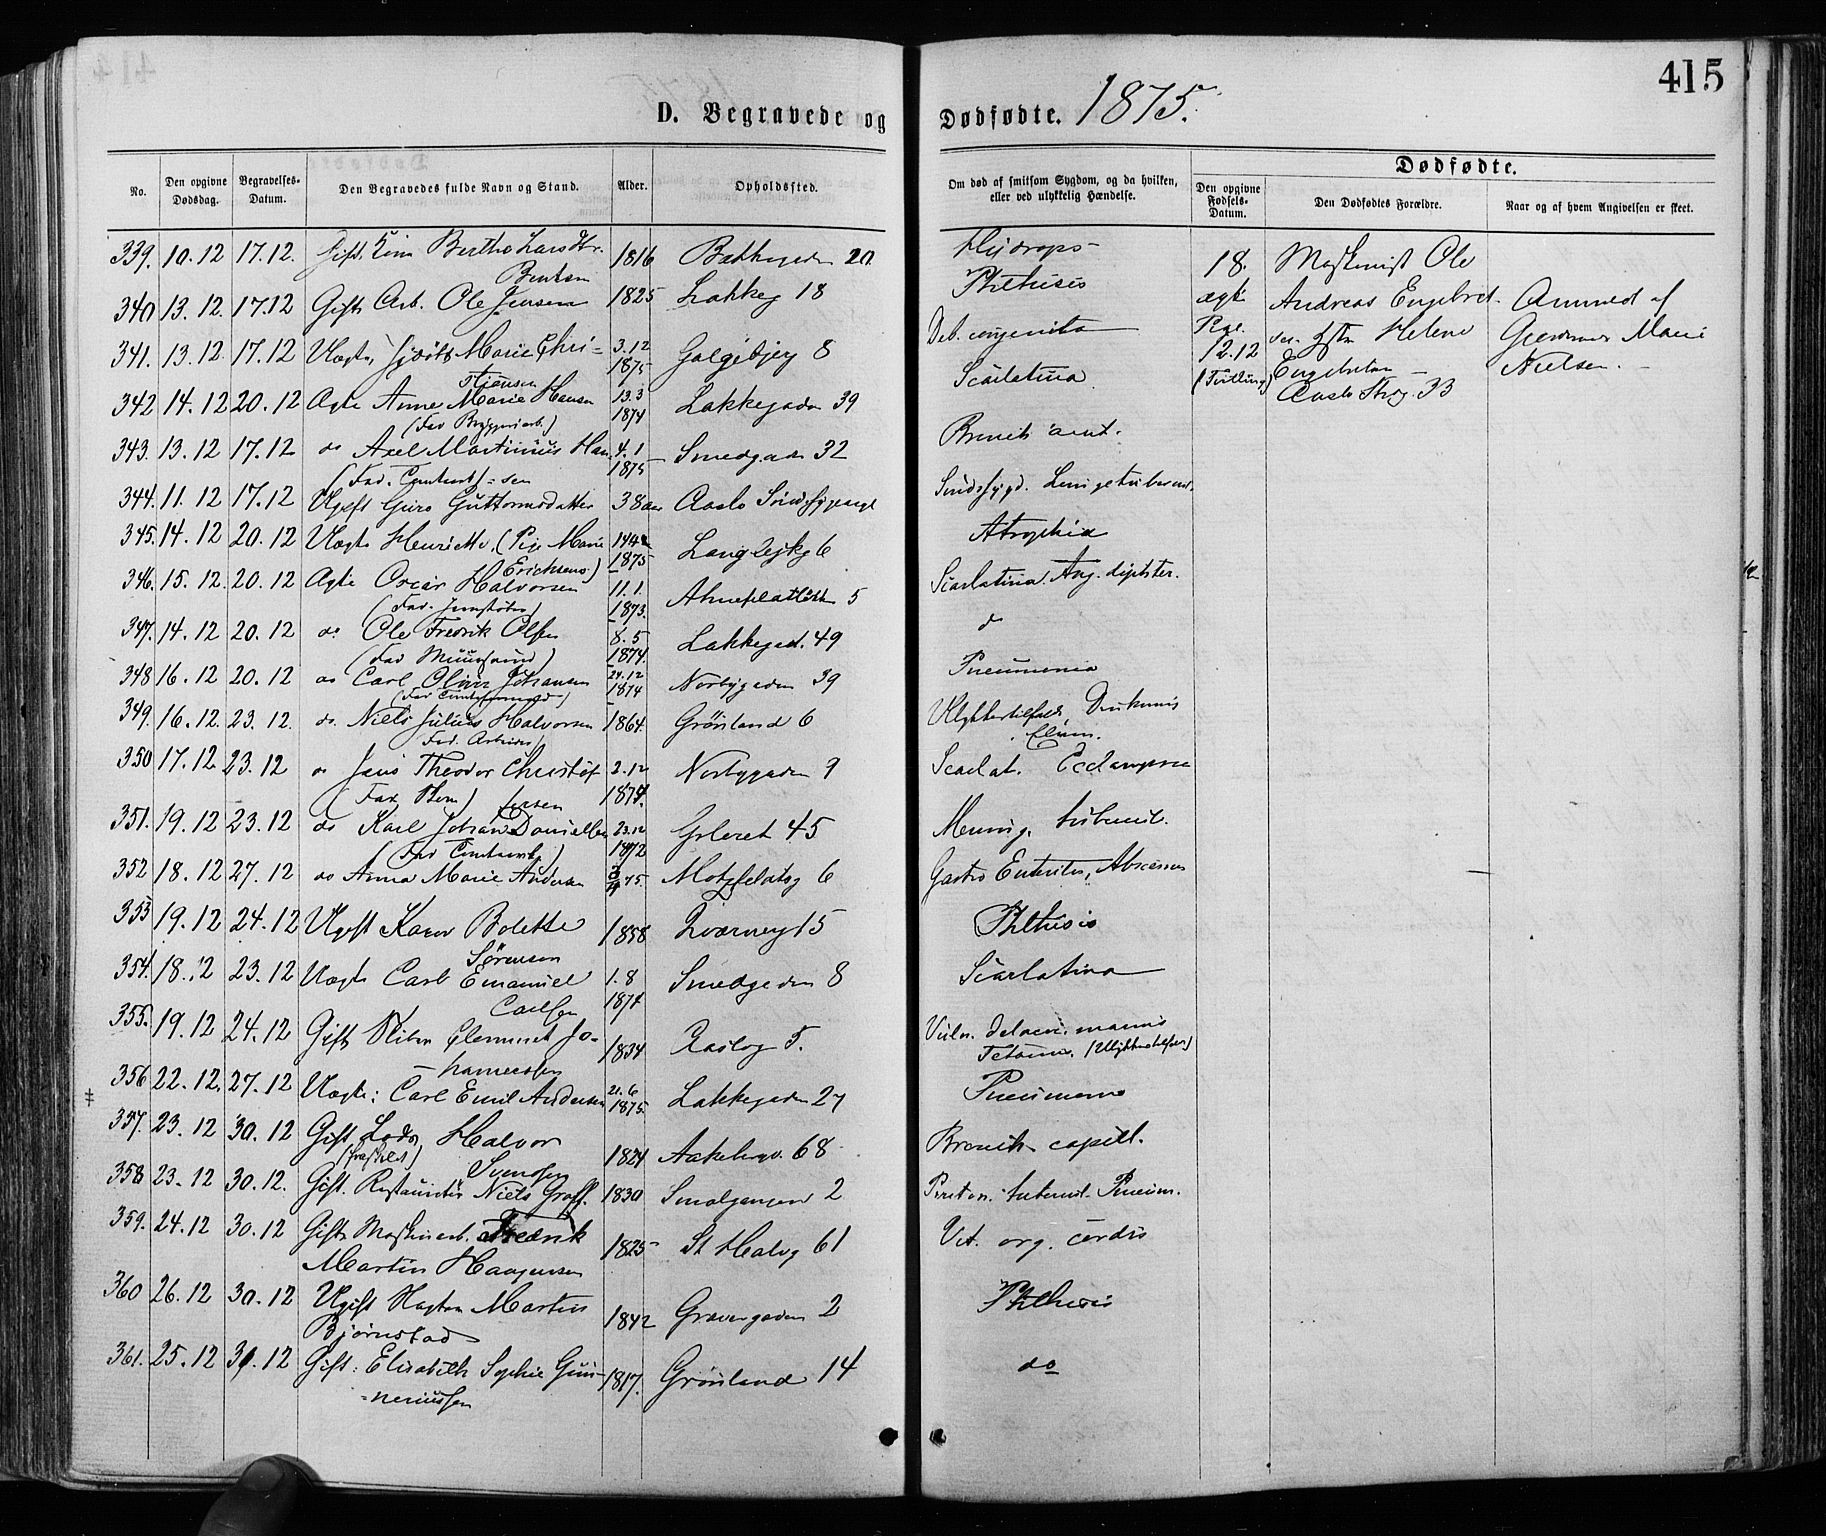 415
D. Begravede og Dødfødte. 1875.
No.
Den opgivne Dødsdag.
Begravelses-Datum.
Den Begravedes fulde Navn og Stand.
Alder.
Opholdssted.
Om død af smitsom Sygdom, og da hvilken, eller ved ulykkelig Hændelse.
Dødfødte.
Den opgivne Fødsels-Datum.
Den Dødfødtes Forældre.
Naar og af hvem Angivelsen er skeet.
339. 10.12 17.12. Gift Bertha Larsdtr. 1816 20 Hydrops
Bentsen
340 13.12. 17.12 Gift Arb. Ole Jensen 1825 Lakkeg 18 Phthisis
341. 13.12. 17.12 Uægte, Marie Chri- 3.12 1875 Galgebjerg 8 Deb. congenita
stiansen
342 14.12 20.12 Ægte Anne Marie Hansen 13.3 1874 Lakkegaden 39 Scarlatina
(Fad Bryggeriarb.)
343. 13.12 17.12 do Axel Martinius Han- 4.1 1875 Smedgaden 32 Bronch. acut.
(Fad. ) -sen
344. 11.12 17.12 Ugift Guro Guttormsdatter 38 aar Aaslo Sindssygeasyl Sindssygd.
345. 14.12 20.12 Uægte Henriette. (Pige Marie 1875 Langlejkg 6 Atrophia
Erichsens)
346. 15.12. 20.12 Ægte Oscar Halvorsen 11.1. 1873. 5 Scarlatina. Ang. diphter.
(Fad. Jernstøber)
347. 14.12 20.12 do Ole Fredrik Olsen 8.5 1874. Lakkegad. 49 d
(Fad Muursvend)
348 16.12 20.12 do Carl Oluis Johansen 24.12 1874 Norbygaden 39 Pneumonia
349. 16.12. 23.12. do. Niels Julius Halvorsen 1864. Grønland 6 Ulykkestilfælde, Druknets
Fad. Arbeider) Elven.
350 17.12 23.12 do Jens Theodor Christof 2.12 1874. Norbygaden 9 Scarlat. Ecclampsia
(Fad ) Jensen
351. 19.12 23.12 do Karl Johan Danielsen 23.12 1872 Grleret 45 Mening. tubercul.
352 18.12 27.12 do Anna Marie Andersen 75. Motzfeldtsg 6 Gastro Enteritis, Abscesser
353 19.12 24.12 Ugift Karen Bolette 1858 Tværvey 15 Phthisis
Sørensen
354. 18.12 23.12 Uægte Carl Emanuel 1.8 1874 Smedgaden 8 Scarlatina
Carlsen
355. 19.12 24.12 Gift Sliber Clemmet Jo- 1834 Aaslog 5. Vuln. delacer. manus
hannessen Tetanus. (Ulykkestilfælde)
356 22.12. 27.12 Uægte: Carl Emil Andersen 21.6 1875. Lakkegaden 27 Pneumonia
357. 23.12 30.12 Gift Lods Halvor 1824 Aakebergv. 68 Bronch. capill.
(fraskilt) Svendsen
358 23.12 30.12. Gift. Restauratør Niels Graff. 1830 Smalgangen 2 Periton. tubercul. Pneum.
359. 24.12 30.12 Gift Maskinarb. Fredrik 1825 St Halvg 61 Vit. org. cordis
Martin Haagensen
360 26.12 30.12 Ugift Martin 1842 Grønlandgaden 2 Phthisis
Bjørnstad
361. 25.12 31.12 Gift: Elisabeth Sophie Gun- 1817. Grønland 14 do
-neriussen
18.
ægte
12.12
(Tvilling)
Maskinist Ole
Andreas Engebret-
sen Helene
Engebretsen
Aaslo 33
Anmeld af
Marie
Nielsen.